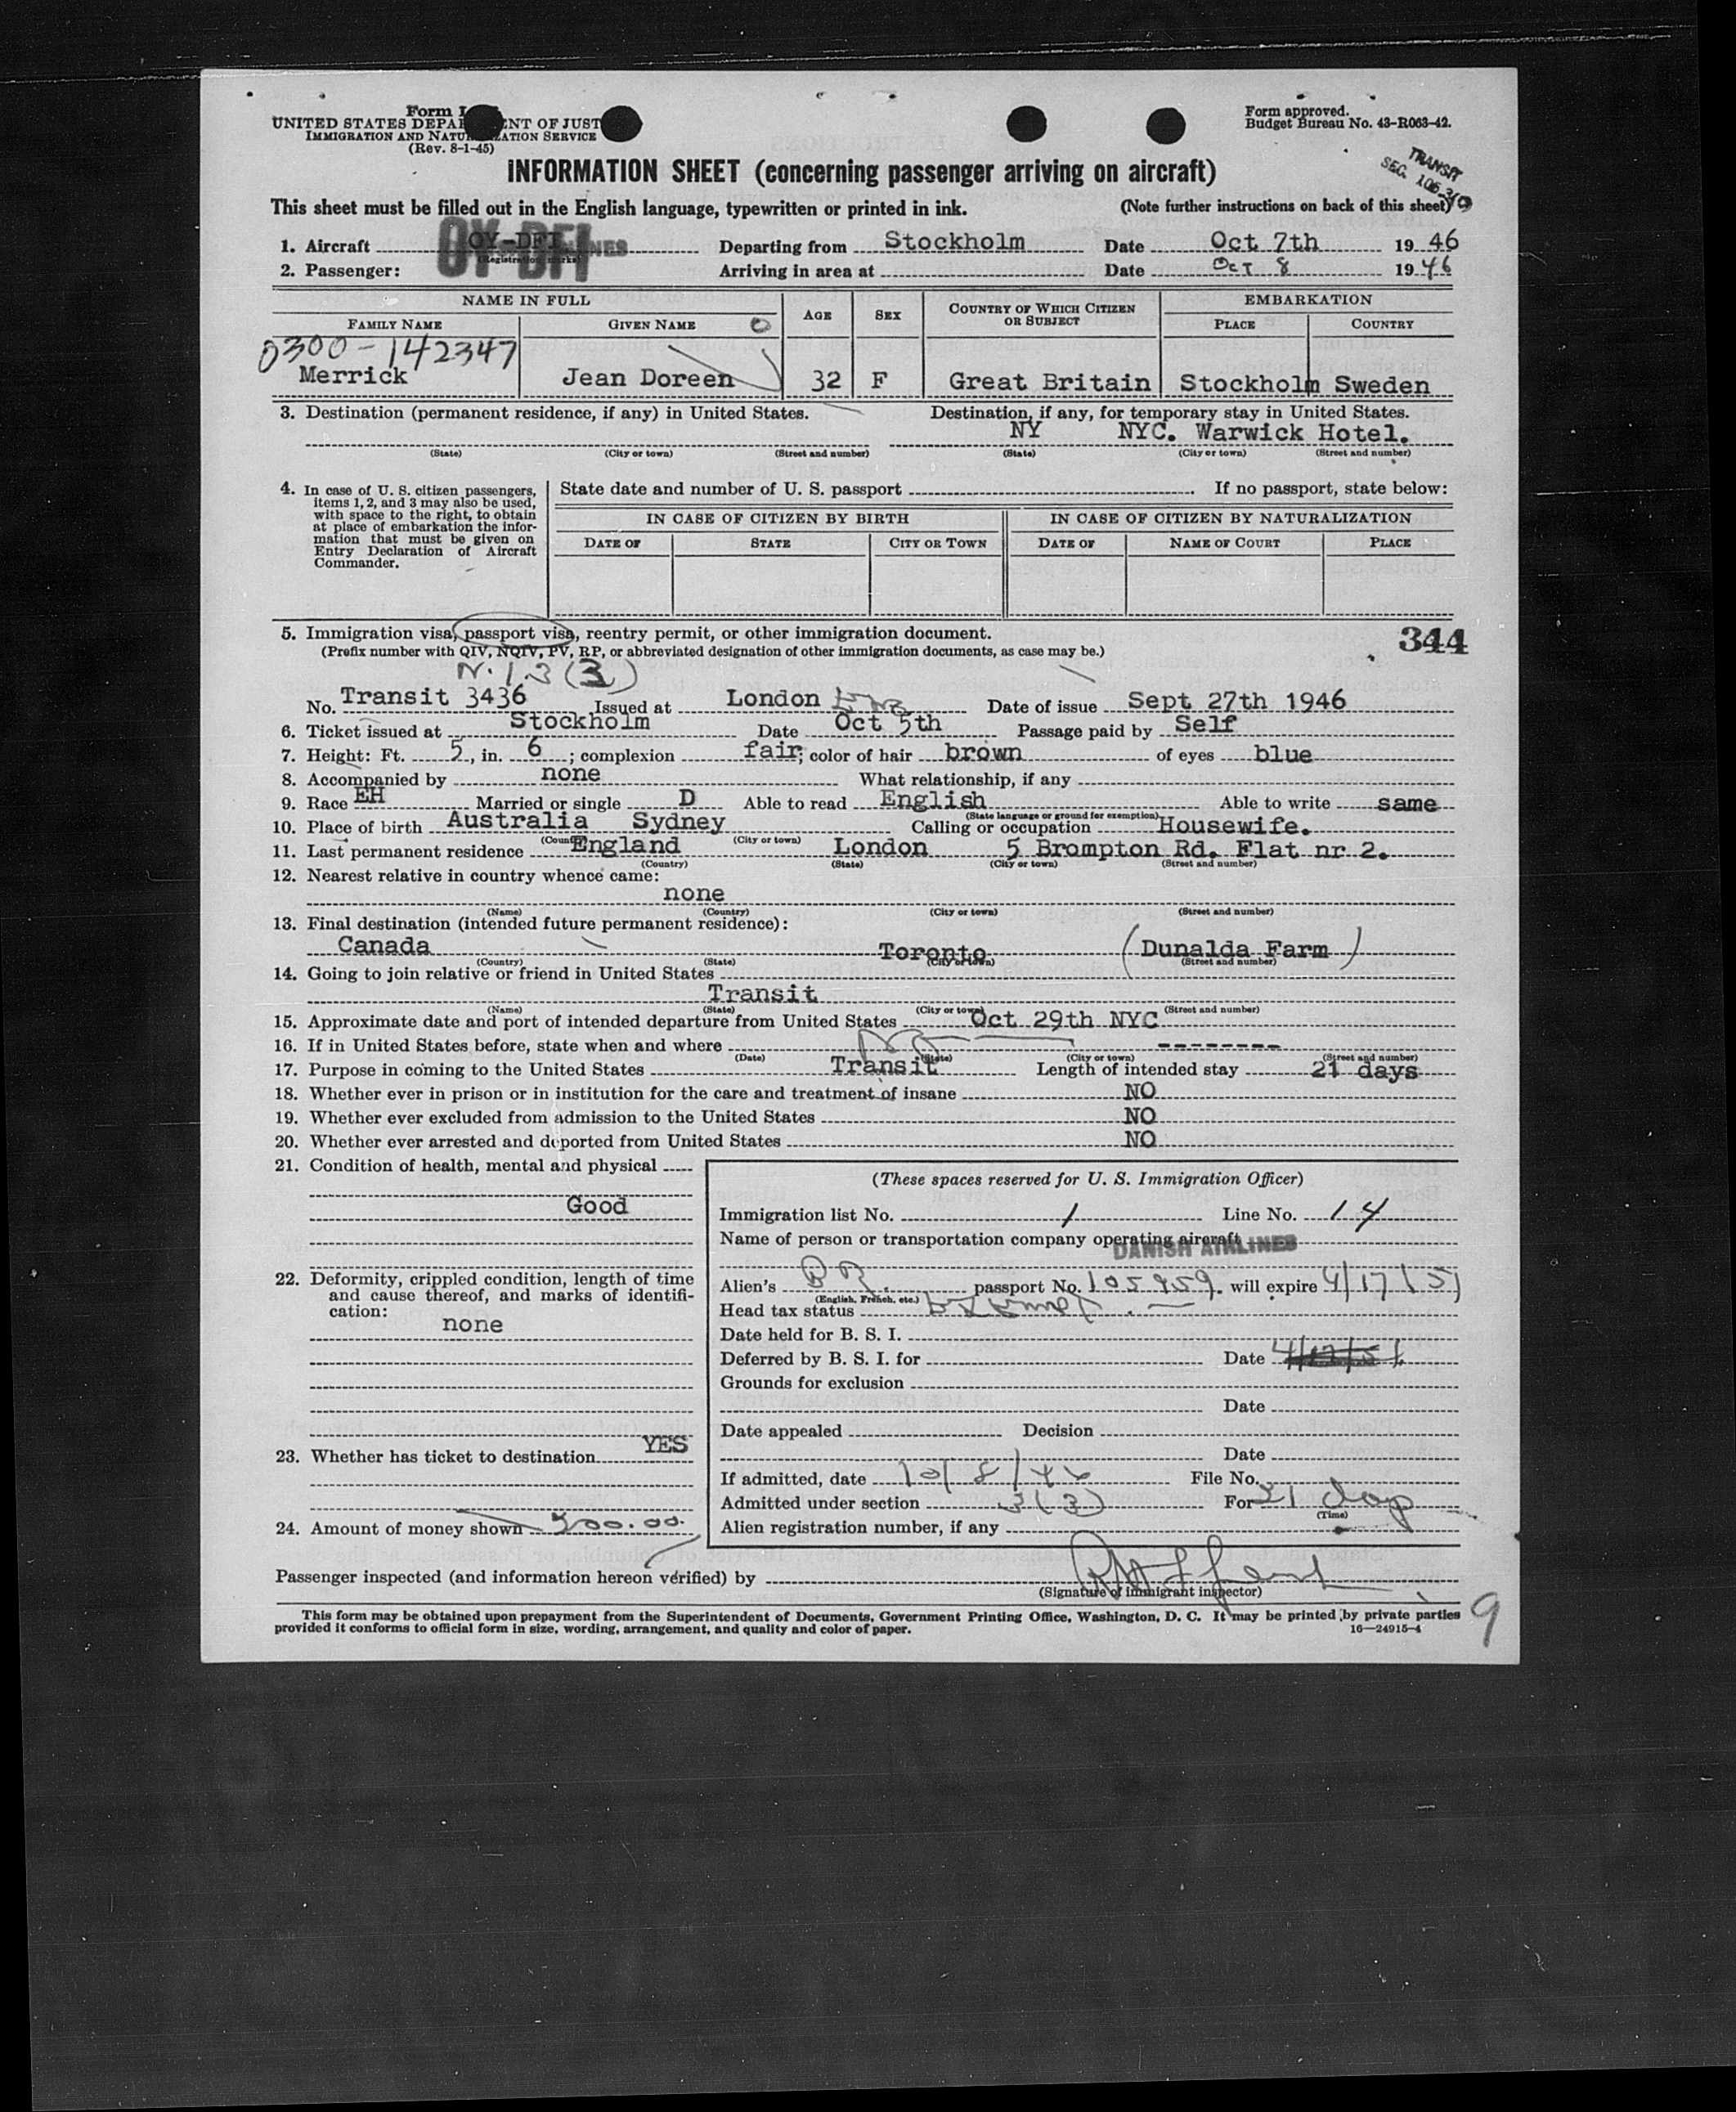 Form I
UNITED STATES DEPA ENT OF JUST
IMMIGRATION AND NATU ZATION SERVICE
(Rev. 8-1-45)
Form approved.
Budget Bureau No. 43-R063-42.
TRANSIT
SEC. 106.3
INFORMATION SHEET (concerning passenger arriving on aircraft)
This sheet must be filled out in the English language, typewritten or printed in ink. (Note further instructions on back of this sheet)
1. Aircraft OY-DFI Departing from Stockholm Date Oct 7th 1946
OY-DFI
2. Passenger: Arriving in area at Date Oct 8 1946
NAME IN FULL AGE SEX COUNTRY OF WHICH CITIZEN OR SUBJECT EMBARKATION
FAMILY NAME GIVEN NAME PLACE COUNTRY
0300-142347
Merrick Jean Doreen 32 F Great Britain Stockholm Sweden
3. Destination (permanent residence, if any) in United States. Destination, if any, for temporary stay in United States.
NY NYC. Warwick Hotel.
(State) (City or town) (Street and number) (State) (City or town) (Street and number)
4. In case of U. S. citizen passengers, items 1, 2, and 3 may also be used, with space to the right, to obtain at place of embarkation the information that must be given on Entry Declaration of Aircraft Commander.
State date and number of U. S. passport . If no passport, state below:
IN CASE OF CITIZEN BY BIRTH IN CASE OF CITIZEN BY NATURALIZATION
DATE OF STATE CITY OR TOWN DATE OF NAME OF COURT PLACE
5. Immigration visa, passport visa, reentry permit, or other immigration document. 344
(Prefix number with QIV, NQIV, PV, RP, or abbreviated designation of other immigration documents, as case may be.)
No. Transit 3436 Issued at London Date of issue Sept 27th 1946
6. Ticket issued at Stockholm Date Oct 5th Passage paid by Self
7. Height: Ft. 5, in. 6; complexion fair; color of hair brown of eyes blue
8. Accompanied by none What relationship, if any
9. Race EH Married or single D Able to read English Able to write same
(State language or ground for exemption)
10. Place of birth Australia Sydney Calling or occupation Housewife.
(City or town)
11. Last permanent residence England London 5 Brompton Rd. Flat nr 2.
(Country) (State) (City or town) (Street and number)
12. Nearest relative in country whence came:
none
(Name) (Country) (City or town) (Street and number)
13. Final destination (intended future permanent residence):
Canada Toronto (Dunalda Farm)
(Country) (State) (City or town) (Street and number)
14. Going to join relative or friend in United States
Transit
(Name) (State) (City or town) (Street and number)
15. Approximate date and port of intended departure from United States Oct 29th NYC
16. If in United States before, state when and where --------
(Date) (State) (City or town) (Street and number)
17. Purpose in coming to the United States Transit Length of intended stay 21 days
18. Whether ever in prison or in institution for the care and treatment of insane NO
19. Whether ever excluded from admission to the United States NO
20. Whether ever arrested and deported from United States NO
21. Condition of health, mental and physical
Good
22. Deformity, crippled condition, length of time and cause thereof, and marks of identification:
none
23. Whether has ticket to destination YES
24. Amount of money shown 500.00
(These spaces reserved for U. S. Immigration Officer)
Immigration list No. 1 Line No. 14
Name of person or transportation company operating aircraft
DANISH AIRLINES
Alien's BR. passport No. 105959. will expire 4/17/51
(English, French, etc.)
Head tax status exempt
Date held for B. S. I.
Deferred by B. S. I. for Date 4/17/51
Grounds for exclusion
Date
Date appealed Decision
Date
If admitted, date 10/8/46 File No.
Admitted under section 3(3) For 21 days
(Time)
Alien registration number, if any
Passenger inspected (and information hereon verified) by
(Signature of immigrant inspector)
This form may be obtained upon prepayment from the Superintendent of Documents, Government Printing Office, Washington, D. C. It may be printed by private parties
provided it conforms to official form in size, wording, arrangement, and quality and color of paper. 16—24915-4
9